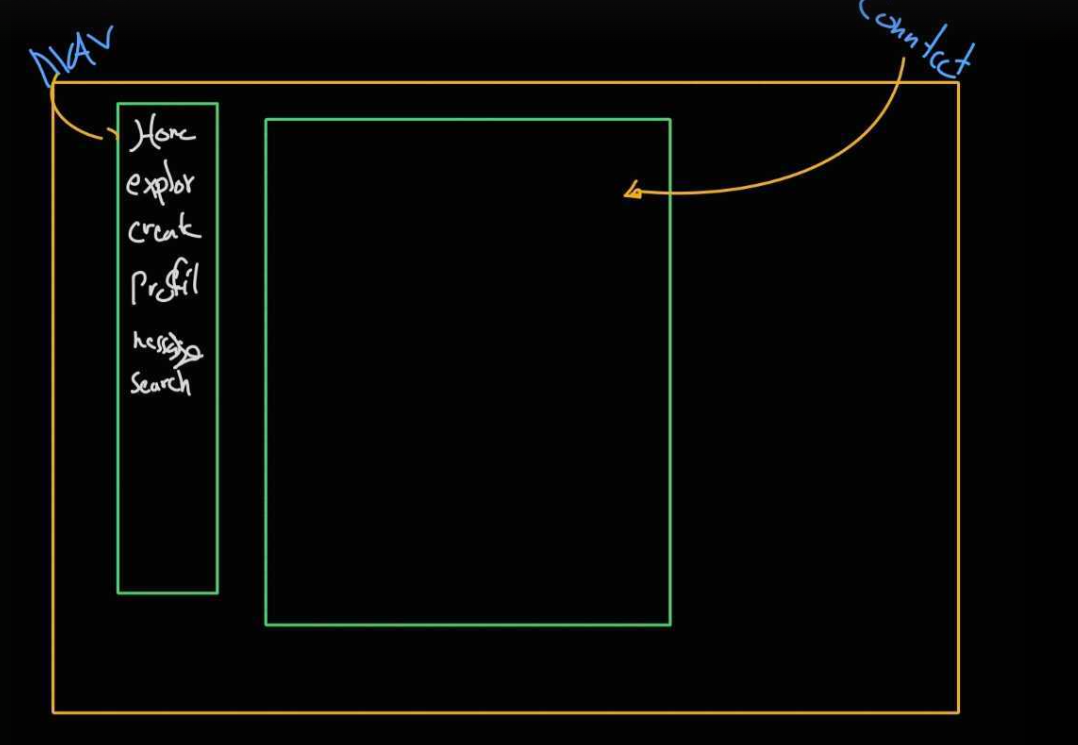 NAV
Conntect
Home
explor
creat
Profil
message
Search